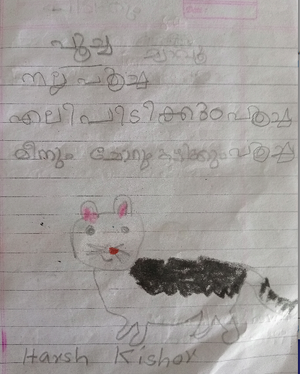 പൂച്ച
നല്ല പൂച്ച
എലിപിടിക്കും പൂച്ച
മീനും ചോറും കഴിക്കും പൂച്ച
Harsh Kishor